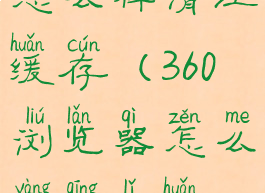 怎么样清理
huǎn cún
缓存(360
liú lǎn qì zěn me
浏览器怎么
yàng qīng lǐ huǎn